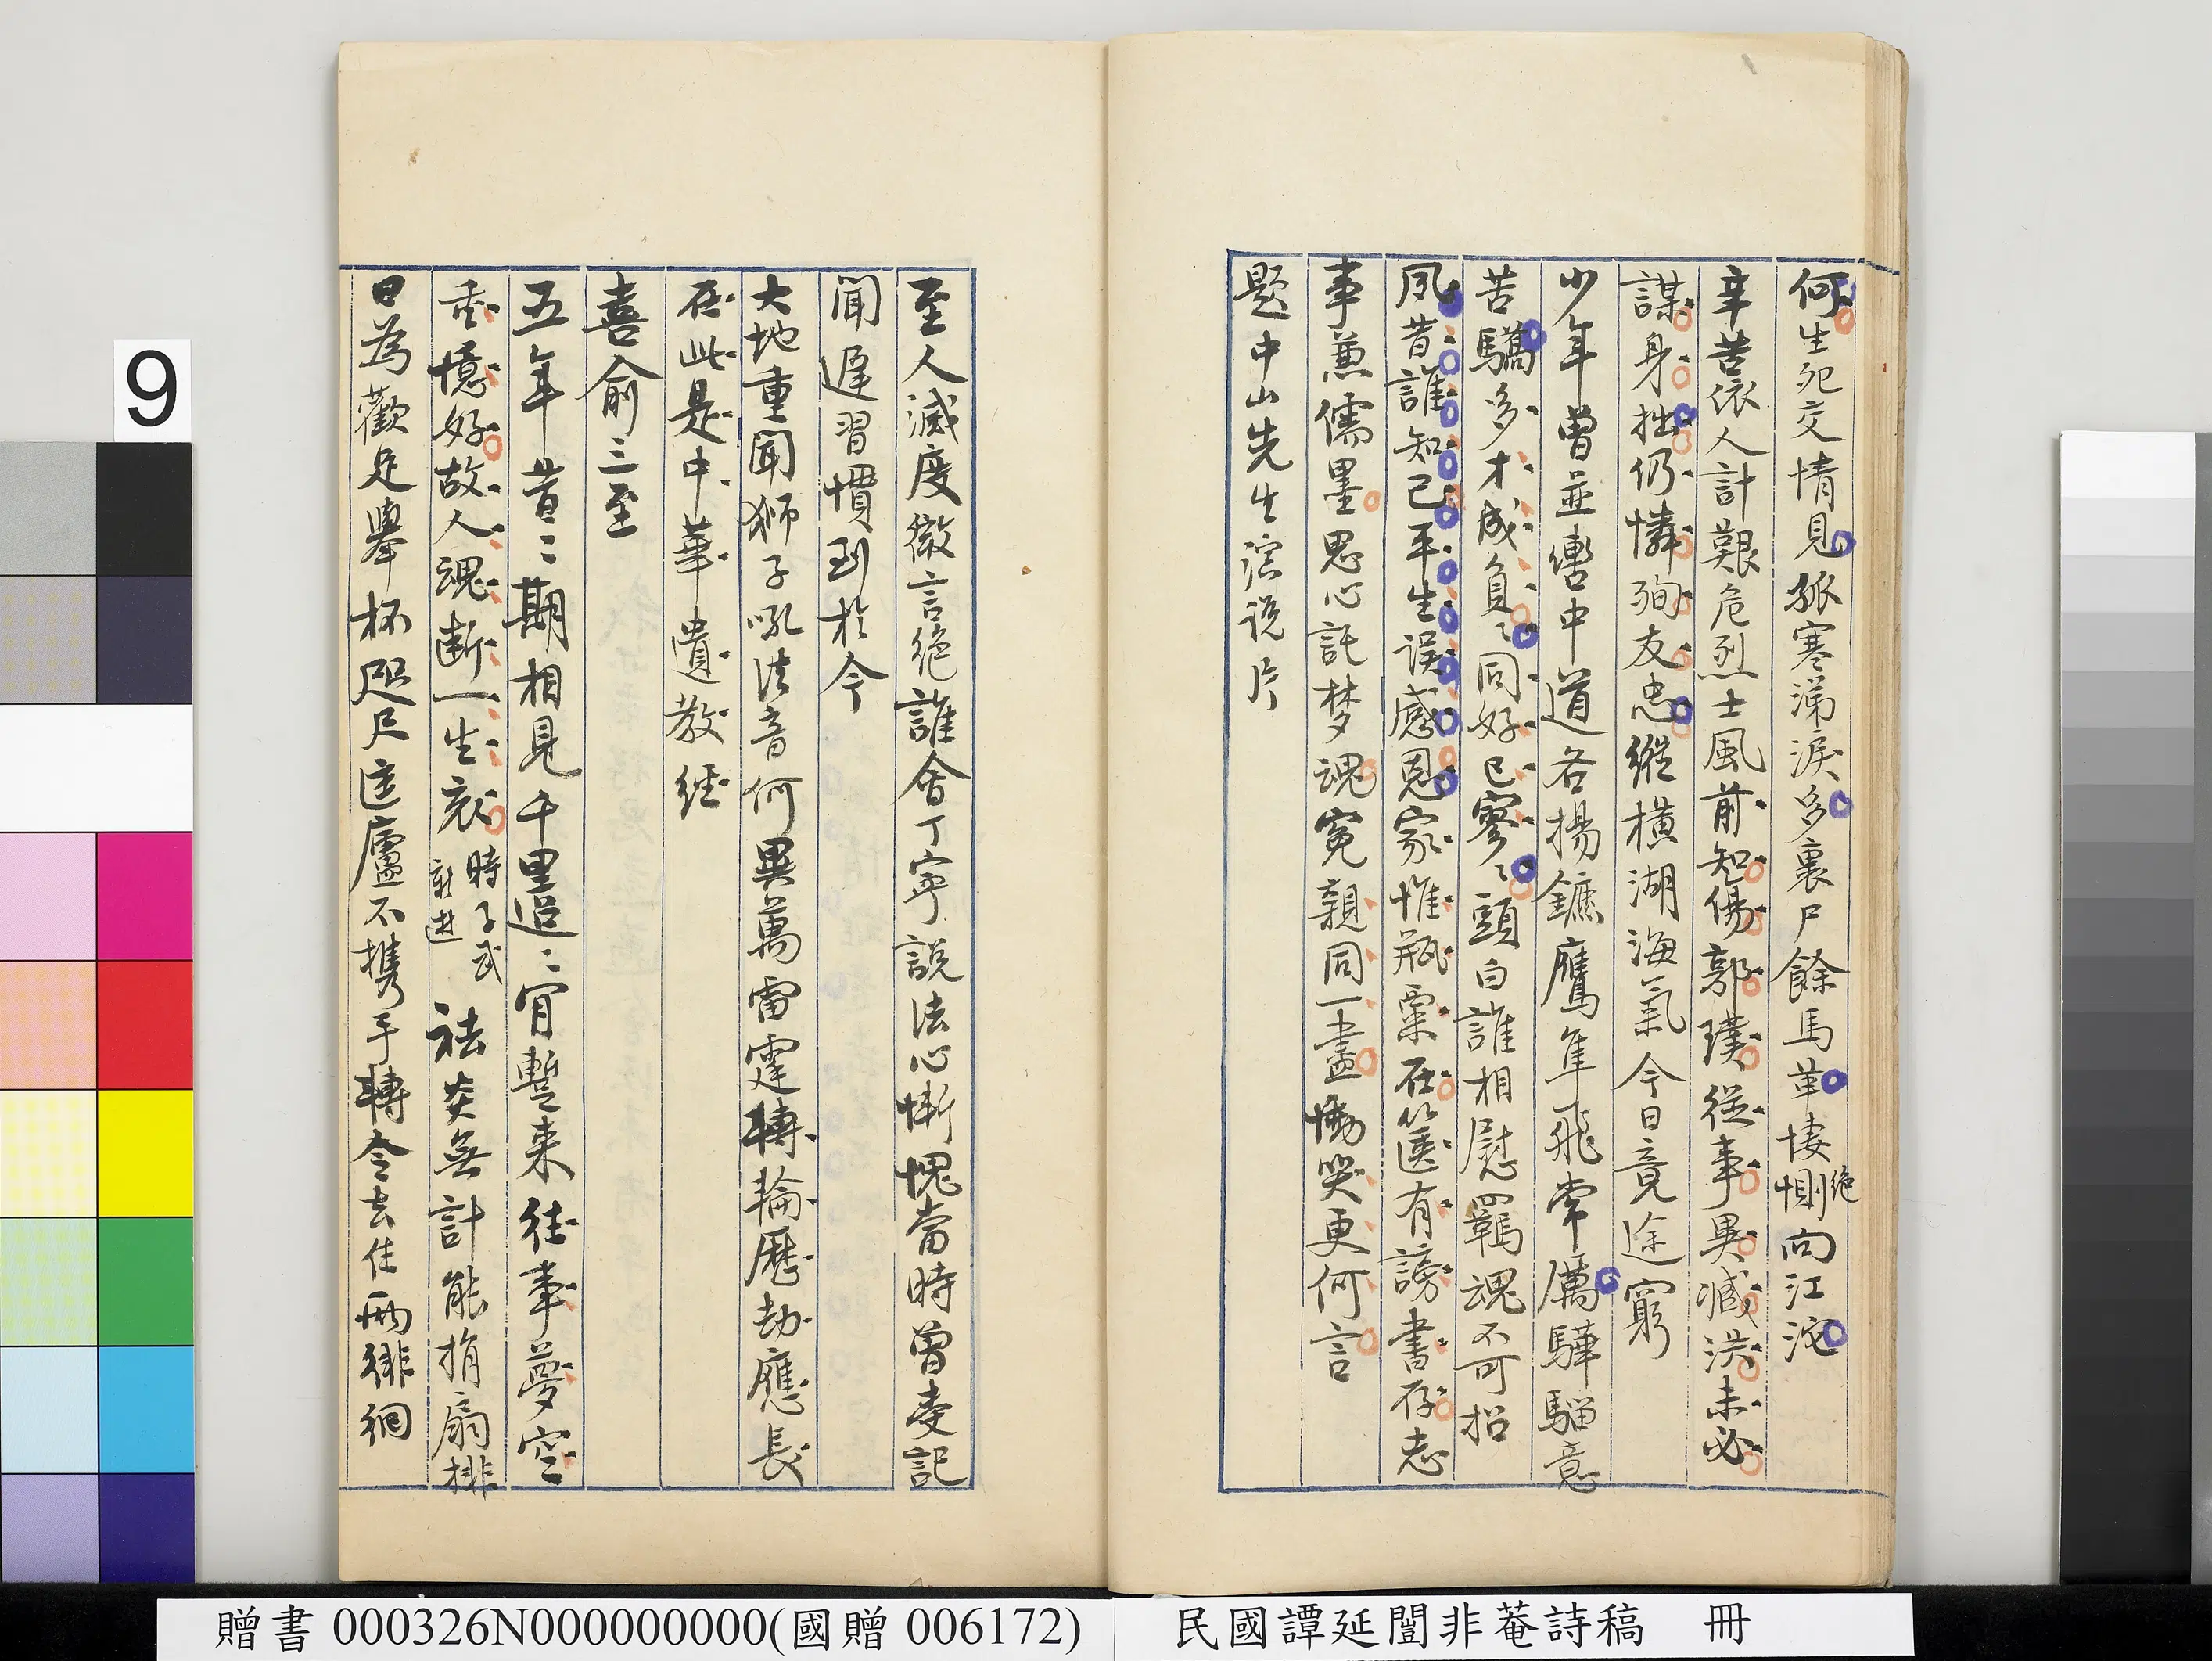 何生死交情見孤寒涕淚多裹尸餘馬革悽惻向江沱
絕
辛苦依人計艱危烈士風前知傷郭璞從事異臧洪未必
謀身拙仍憐殉友忠縱橫湖海氣今日竟途窮
少年曾並轡中道各揚鑣鷹隼飛常厲驊騮意
苦驕多才成負負同好已寥寥頭白誰相慰羈魂不可招
夙昔誰知己平生誤感恩家惟瓶粟在篋有謗書存志
事兼儒墨思心託梦魂冤親同一盡慟哭更何言
題中山先生演説片
至人滅度微言絕誰會丁寧說法心慚愧當時曾受記
聞遲習慣到於今
大地重聞獅子吼法音何異萬雷霆轉輪歷劫應長
在此是中華遺教經
喜俞三至
五年昔昔期相見千里迢迢肯暫来往事夢空
垂憶好故人魂斷一生哀
時子武
新逝
祛炎無計能捐扇排
日為歡足舉杯咫尺匡廬不携手轉令去住兩徘徊
9
贈書 000326N000000000(國贈 006172)
民國譚延闓非菴詩稿 冊